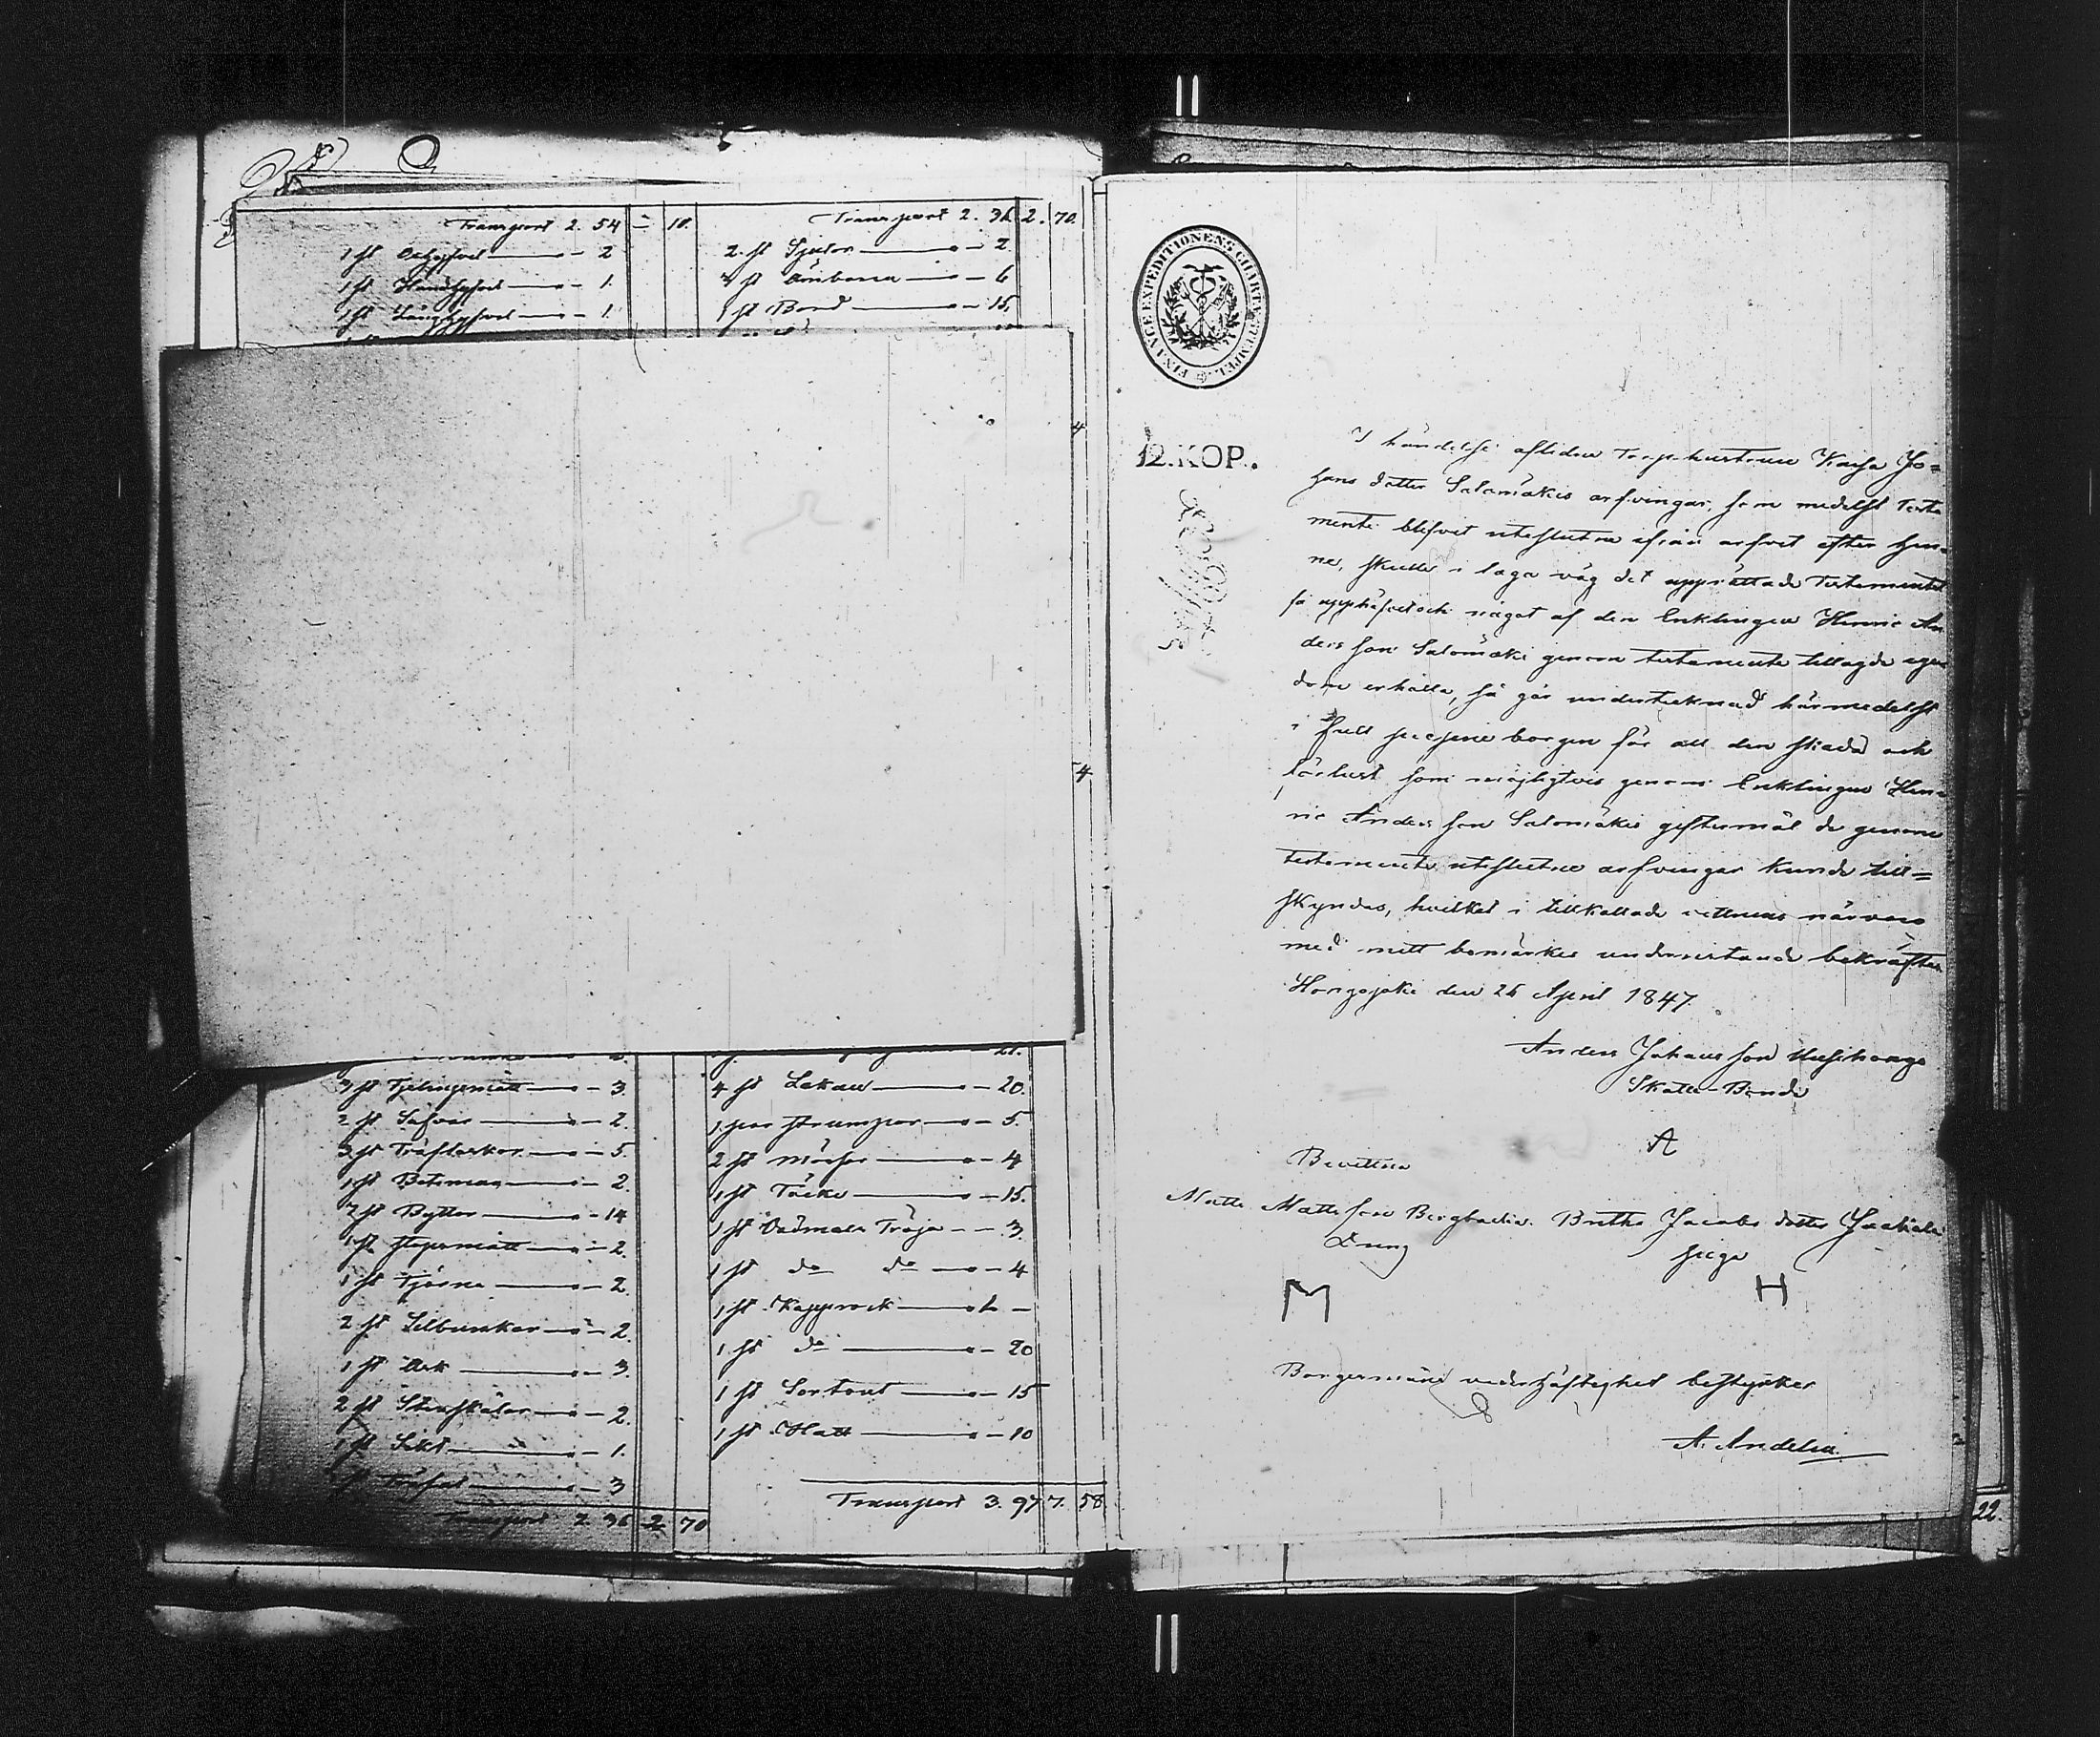 Transport 2. 54 – 10.
1 st – 2
1 st – 1.
1 st – 1.
3 st – 3.
2 st Såfvar – 2.
3 st Träflaskor – 5.
1 st Betsman – 2.
7 st Byttor – 14
1 st – 2.
1 st Tjärna – 2.
2 st – 2.
1 st Ark – 3.
2 st Stenskålar – 2.
1 st Sikt – 1.
– 3
Transport 2 36 2 70
Transport 2. 36 2. 70.
2. st – 2.
4 st Ämbaren – 6
1 st Bord – 15.
21.
4 st Lakan – 20.
1 par strumpor – 5.
2 st mössor – 4
1 st Täcke – 15.
1 st Vadmals Tröja – 3.
1 st do do – 4
1 st Kapprock –
1 st do – 20
1 st Sortout – 15
1 st Hatt – 10
Transport 3. 97 7. 58
4
4
FINANCE EXPEDITIONENS CHARTÆ STEMPEL
12. KOP.
I händelse aflidne Torp hustrun Kaisa Jo=
hans dotter Salomäkis arfvingar, som medelst Testa
mente blifvit uteslutne ifrån arfvet efter hen=
ne, skulle i laga väg det upprättade Testamentet
få upphäfvet och något af den Enklingen Henric An
ders son Salomäki genom testamente tillagde egen
dom erhålla, så går undertecknad härmedelst
i full borgen för all den skada och
förlust som möjligtvis genom Enklingen Hen=
ric Anders son Salomäkis giftermål de genom
testamente uteslutne arfvingar kunde till=
skyndas, hvilket i tillkallade vittnens närvaro
med mitt bomärkes undersättande bekräftas
den 26 April 1847.
Anders Johans son
Skatte-Bonde
A
Bevittna
Matts Matts son Britha Jacobs dotter
Dräng piga
M H
Borgesmäns vederhäftighet bestyrker
A. Andelin
22.